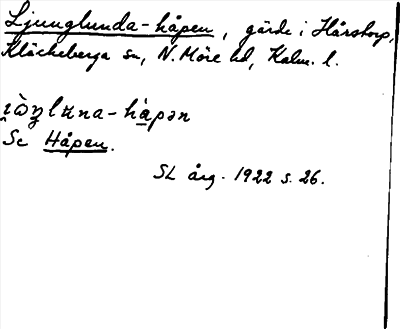 Ljunglunda-håpen, gärde i Hårstorp,
Kläckeberga sn, N. Möre hd, Kalm. l.
-håpən
Se Håpen.
SL årg. 1922 s. 26.